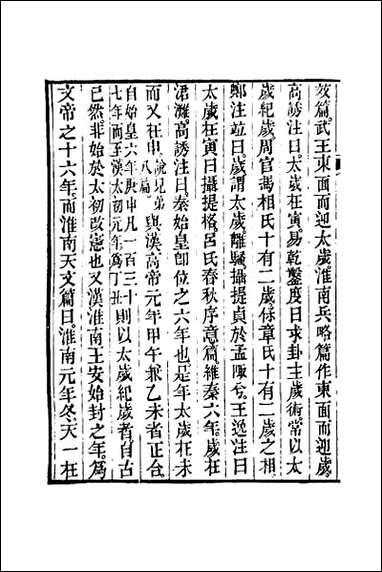 效篇武王東面而迎太歲淮南兵略篇作東面而迎歲
高誘注曰太歲在寅易乾鑿度曰求卦主歲術常以太
歲紀歲周官馮相氏十有二歲保章氏十有二歲之相
鄭注竝曰歲謂太歲離騷攝提貞於孟陬兮王逸注曰
太歲在寅曰攝提格呂氏春秋序意篇維秦六年歲在
涒灘高誘注曰秦始皇卽位之六年也是年太歲在未
而又在申說見弟八篇與漢高帝元年甲午兼乙未者正合
自始皇六年庚申凡一百三十七年而至漢太初元年爲丁丑則以太歲紀歲者自古
已然非始於太初改憲也又漢淮南王安始封之年爲
文帝之十六年而淮南天文篇曰淮南元年冬天一在